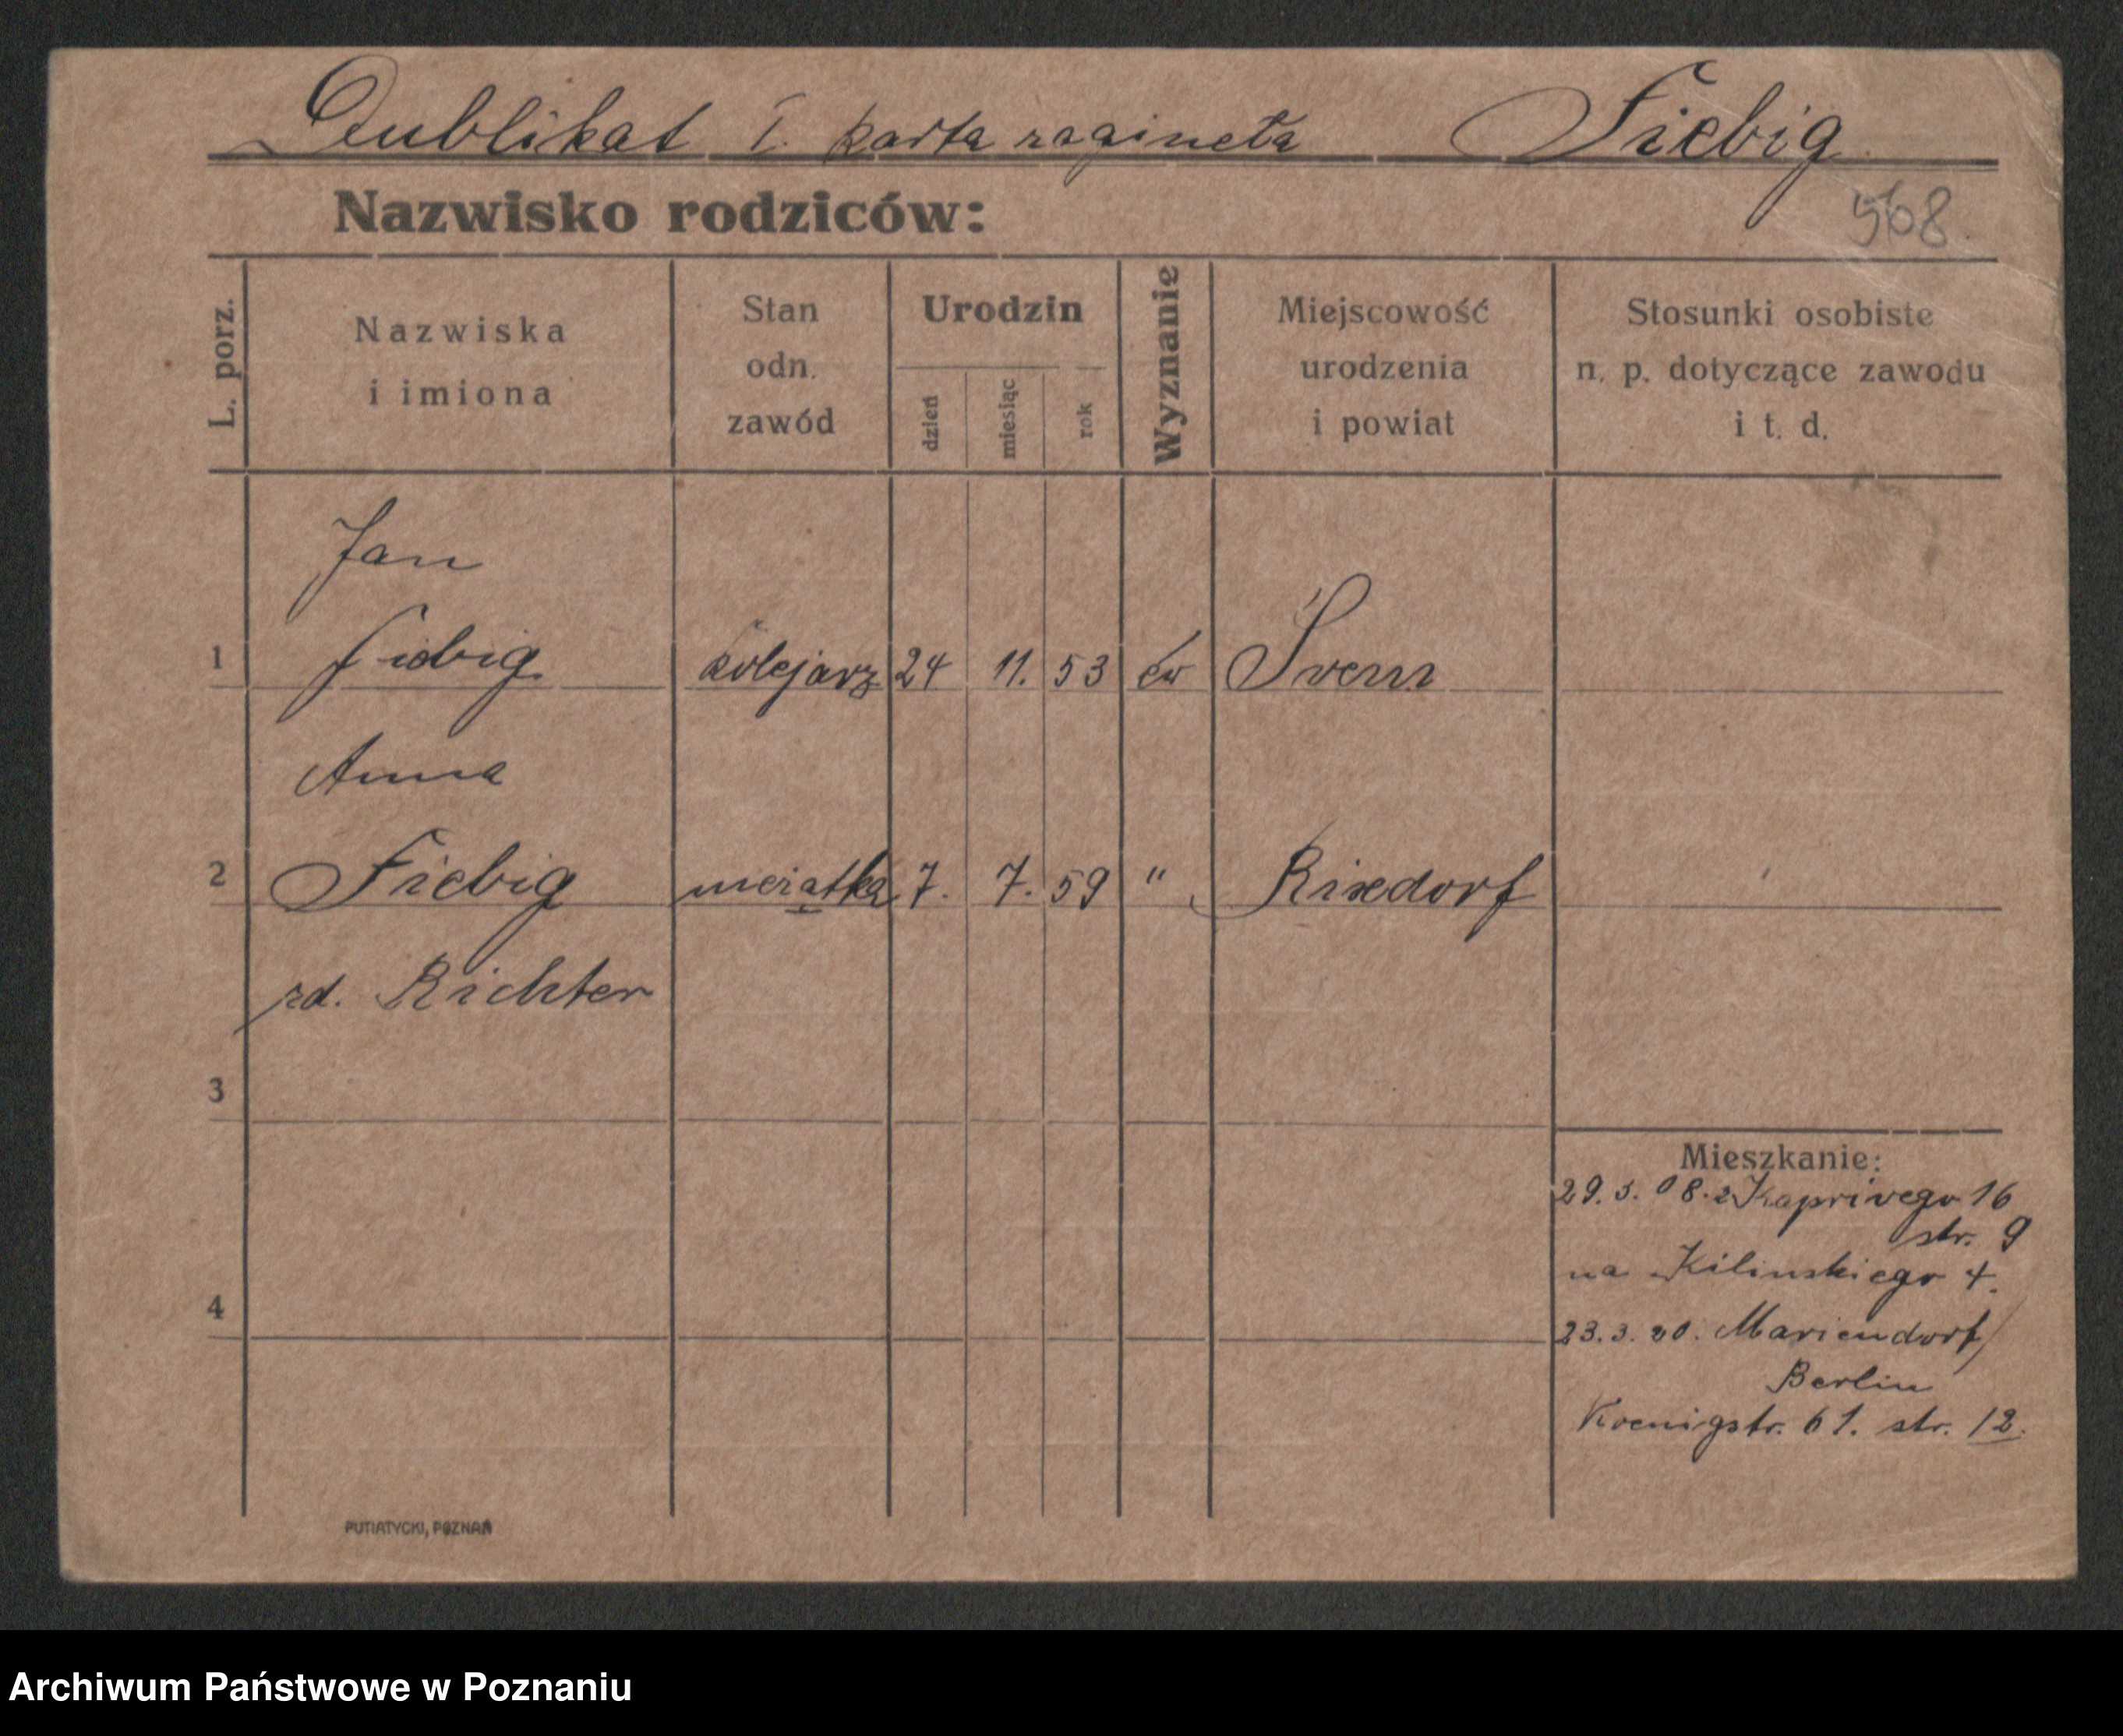 Dublikat I. karta zaginęła Fiebig
Nazwisko rodziców:
568.
L. porz.
Nazwiska i imiona
Stan odn. zawód
Urodzin
dzień miesiąc rok
Wyznanie
Miejscowość urodzenia i powiat
Stosunki osobiste n. p. dotyczące zawodu i t. d.
Jan
1 Fiebig kolejarz 24 11. 53 ew Śrem
Anna
2 Fiebig mężatka 7. 7. 59 " Rixdorf
rd. Richter
3
Mieszkanie:
29. 5. 08. z Kaprivego 16
str. 9
na Kilinskiego 4.
4
23. 3. 20. Mariendorf/
Berlin
Koenigstr. 61. str. 12.
PUTIATYCKI, POZNAŃ
Archiwum Państwowe w Poznaniu